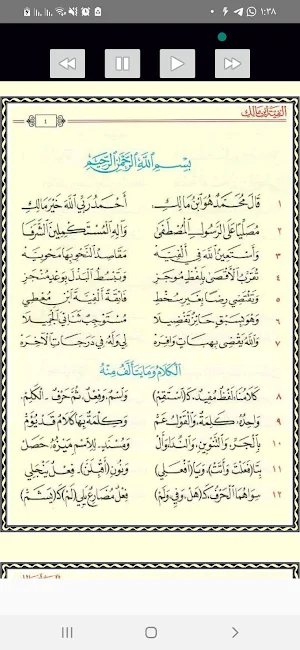 ١:٣٨
ألفية ابن مالك
٤
بِسْمِ اللَّهِ الرَّحْمَٰنِ الرَّحِيمِ
١ قَالَ مُحَمَّدٌ هُوَ ابْنُ مَالِكِ أَحْمَدُ رَبِّي اللَّهَ خَيْرَ مَالِكِ
٢ مُصَلِّيًا عَلَى الرَّسُولِ الْمُصْطَفَى وَآلِهِ الْمُسْتَكْمِلِينَ الشَّرَفَا
٣ وَأَسْتَعِينُ اللَّهَ فِي أَلْفِيَّهْ مَقَاصِدُ النَّحْوِ بِهَا مَحْوِيَّهْ
٤ تُقَرِّبُ الْأَقْصَى بِلَفْظٍ مُوجَزِ وَتَبْسُطُ الْبَذْلَ بِوَعْدٍ مُنْجَزِ
٥ وَتَقْتَضِي رِضًا بِغَيْرِ سُخْطِ فَائِقَةً أَلْفِيَّةَ ابْنِ مُعْطِي
٦ وَهْوَ بِسَبْقٍ حَائِزٌ تَفْضِيلَا مُسْتَوْجِبٌ ثَنَائِيَ الْجَمِيلَا
٧ وَاللَّهُ يَقْضِي بِهِبَاتٍ وَافِرَهْ لِي وَلَهُ فِي دَرَجَاتِ الْآخِرَهْ
الْكَلَامُ وَمَا يَتَأَلَّفُ مِنْهُ
٨ كَلَامُنَا لَفْظٌ مُفِيدٌ كَـ(اسْتَقِمْ) وَاسْمٌ وَفِعْلٌ ثُمَّ حَرْفٌ الْكَلِمْ
٩ وَاحِدُهُ كَلِمَةٌ وَالْقَوْلُ عَمْ وَكِلْمَةٌ بِهَا كَلَامٌ قَدْ يُؤَمْ
١٠ بِالْجَرِّ وَالتَّنْوِينِ وَالنِّدَا وَأَلْ وَمُسْنَدٍ لِلِاسْمِ مَيْزُهُ حَصَلْ
١١ بِتَا (فَعَلْتَ وَأَتَتْ) وَيَا (افْعَلِي) وَنُونِ (أَقْبِلَنَّ) فِعْلٌ يَنْجَلِي
١٢ سِوَاهُمَا الْحَرْفُ كَـ(هَلْ، وَفِي، وَلَمْ) فِعْلٌ مُضَارِعٌ يَلِي (لَمْ) كَـ(يَشَمْ)